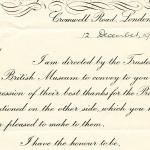 Cromwell Road, London
12 December, 19
I am directed by the Truste
British Museum to convey to you
ression of their best thanks for the Pr
ntioned on the other side, which you h
pleased to make to them.
I have the honour to be,